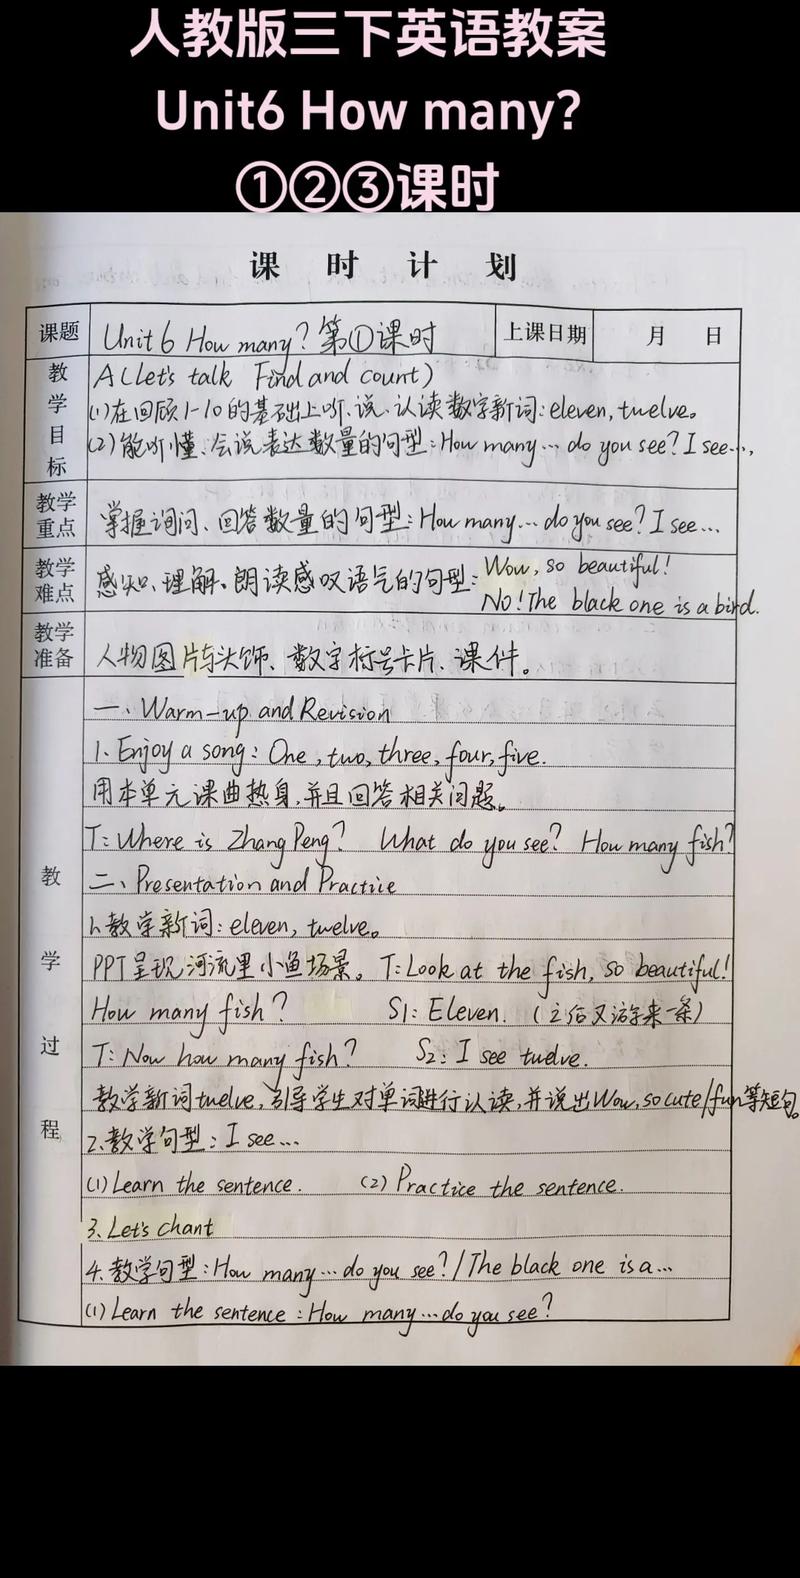 人教版三下英语教案
Unit6 How many?
①②③课时
课 时 计 划
课题 Unit 6 How many? 第①课时 上课日期 月 日
教学目标
A (Let's talk Find and count)
(1)在回顾1-10的基础上听、说、认读数字新词:eleven, twelve。
(2)能听懂、会说表达数量的句型:How many… do you see? I see…,
教学重点 掌握询问、回答数量的句型:How many… do you see? I see…
教学难点 感知、理解、朗读感叹语气的句型: Wow, so beautiful!
No! The black one is a bird.
教学准备 人物图片与头饰、数字标号卡片、课件。
教学过程
一、Warm-up and Revision
1. Enjoy a song: One, two, three, four, five.
用本单元课曲热身,并且回答相关问题。
T: Where is Zhang Peng? What do you see? How many fish?
二、Presentation and Practice
1.教学新词:eleven, twelve。
PPT呈现河流里小鱼场景。T: Look at the fish, so beautiful!
How many fish? S1: Eleven. (之后又游来一条)
T: Now how many fish? S2: I see twelve.
教学新词twelve,引导学生对单词进行认读,并说出Wow, so cute/fun等短句。
2.教学句型:I see…
(1) Learn the sentence. (2) Practice the sentence.
3. Let's chant
4.教学句型:How many… do you see? / The black one is a…
(1) Learn the sentence: How many… do you see?